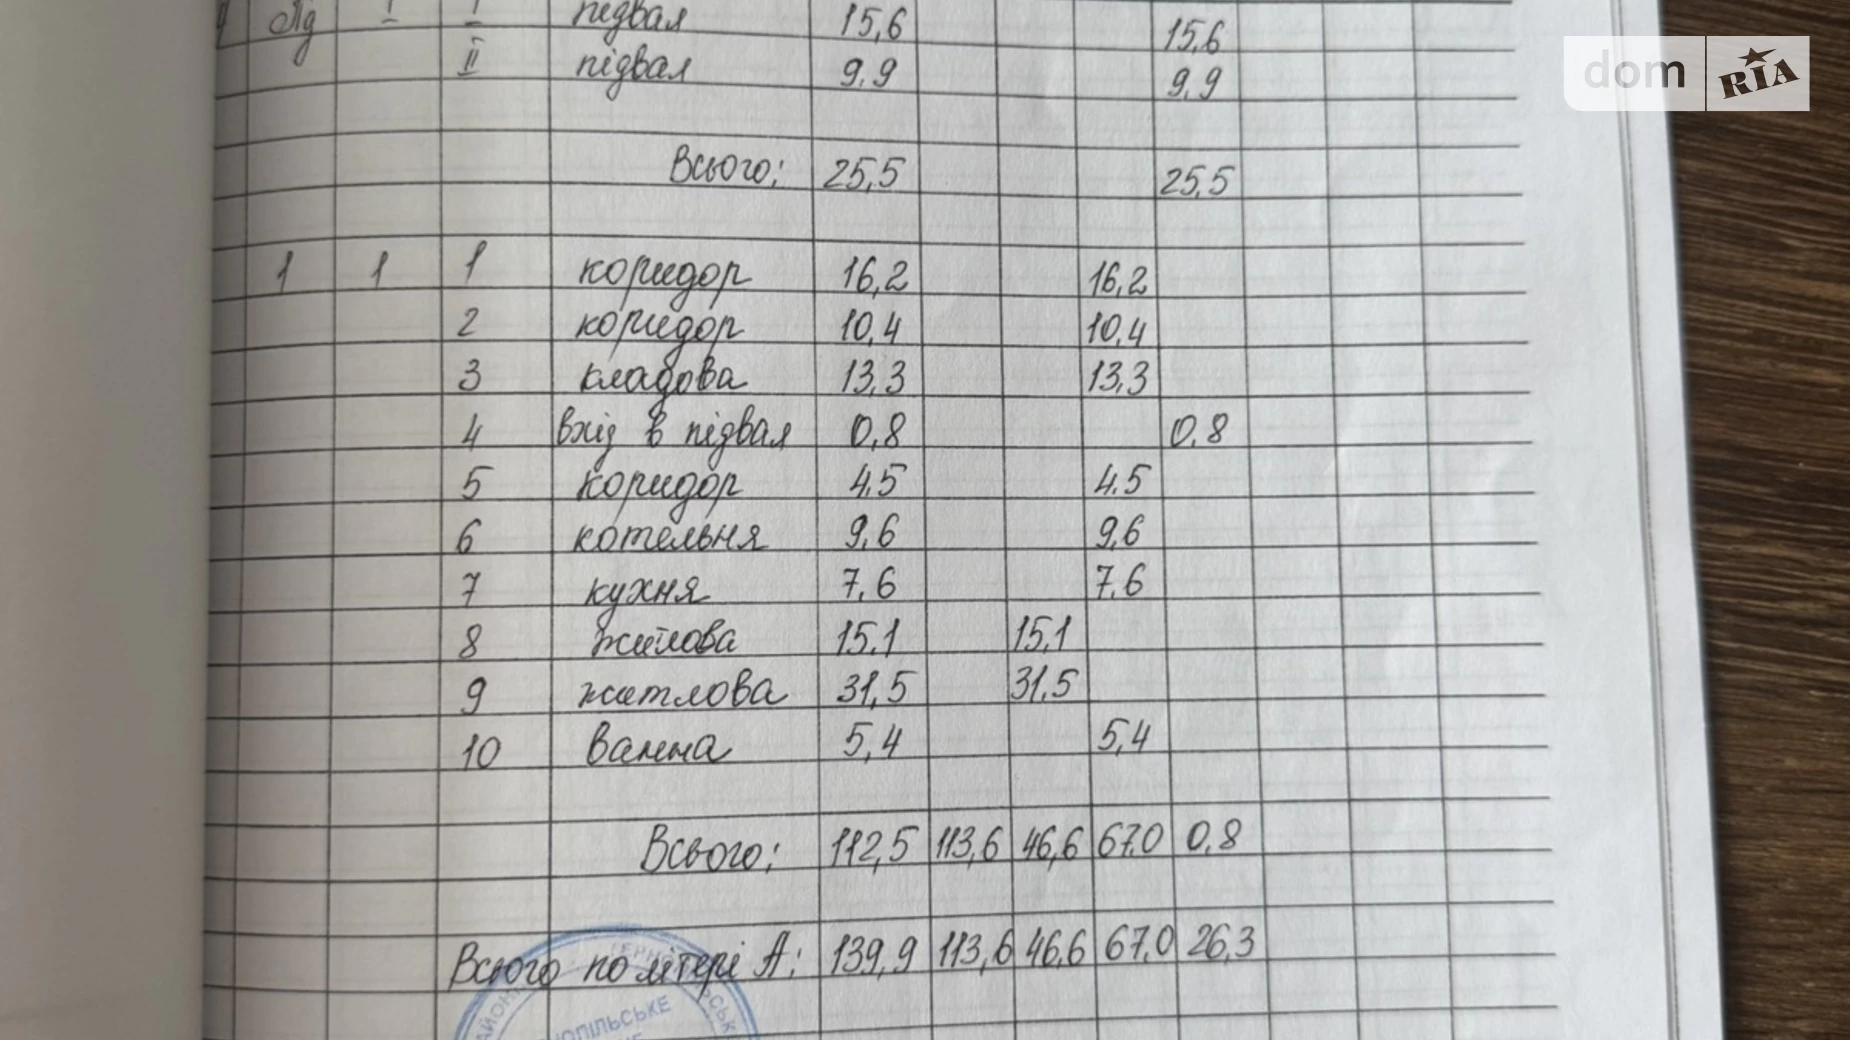 Пд I I підвал 15,6 15,6
II підвал 9,9 9,9
dom RIA
Всього: 25,5 25,5
1 1 1 коридор 16,2 16,2
2 коридор 10,4 10,4
3 кладова 13,3 13,3
4 вхід в підвал 0,8 0,8
5 коридор 4,5 4.5
6 котельня 9,6 9,6
7 кухня 7,6 7,6
8 житлова 15,1 15,1
9 житлова 31,5 31,5
10 ванна 5,4 5,4
Всього: 112,5 113,6 46,6 67,0 0,8
Всього по літері А: 139,9 113,6 46,6 67,0 26,3